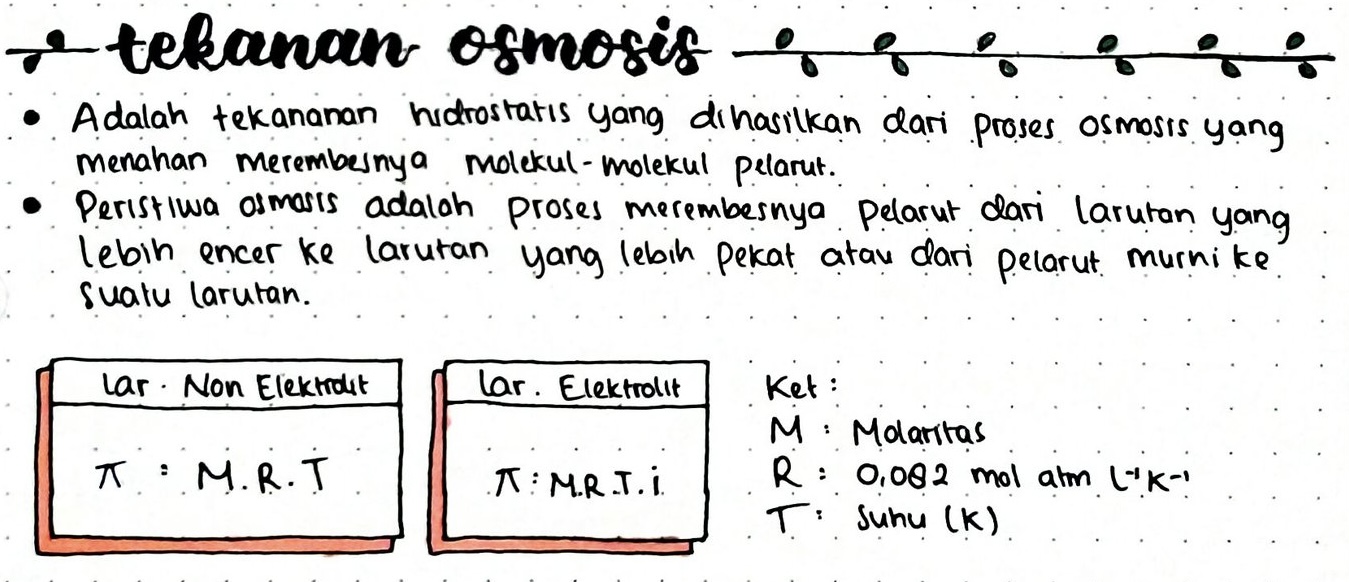 tekanan osmosis
• Adalah tekananan hidrostatis yang dihasilkan dari proses osmosis yang
menahan merembesnya molekul-molekul pelarut.
• Peristiwa osmosis adalah proses merembesnya pelarut dari larutan yang
lebih encer ke larutan yang lebih pekat atau dari pelarut murni ke
suatu larutan.
Lar. Non Elektrolit
π : M.R.T
Lar. Elektrolit
π : M.R.T.i
Ket :
M : Molaritas
R : 0,082 mol atm L⁻¹K⁻¹
T : Suhu (K)